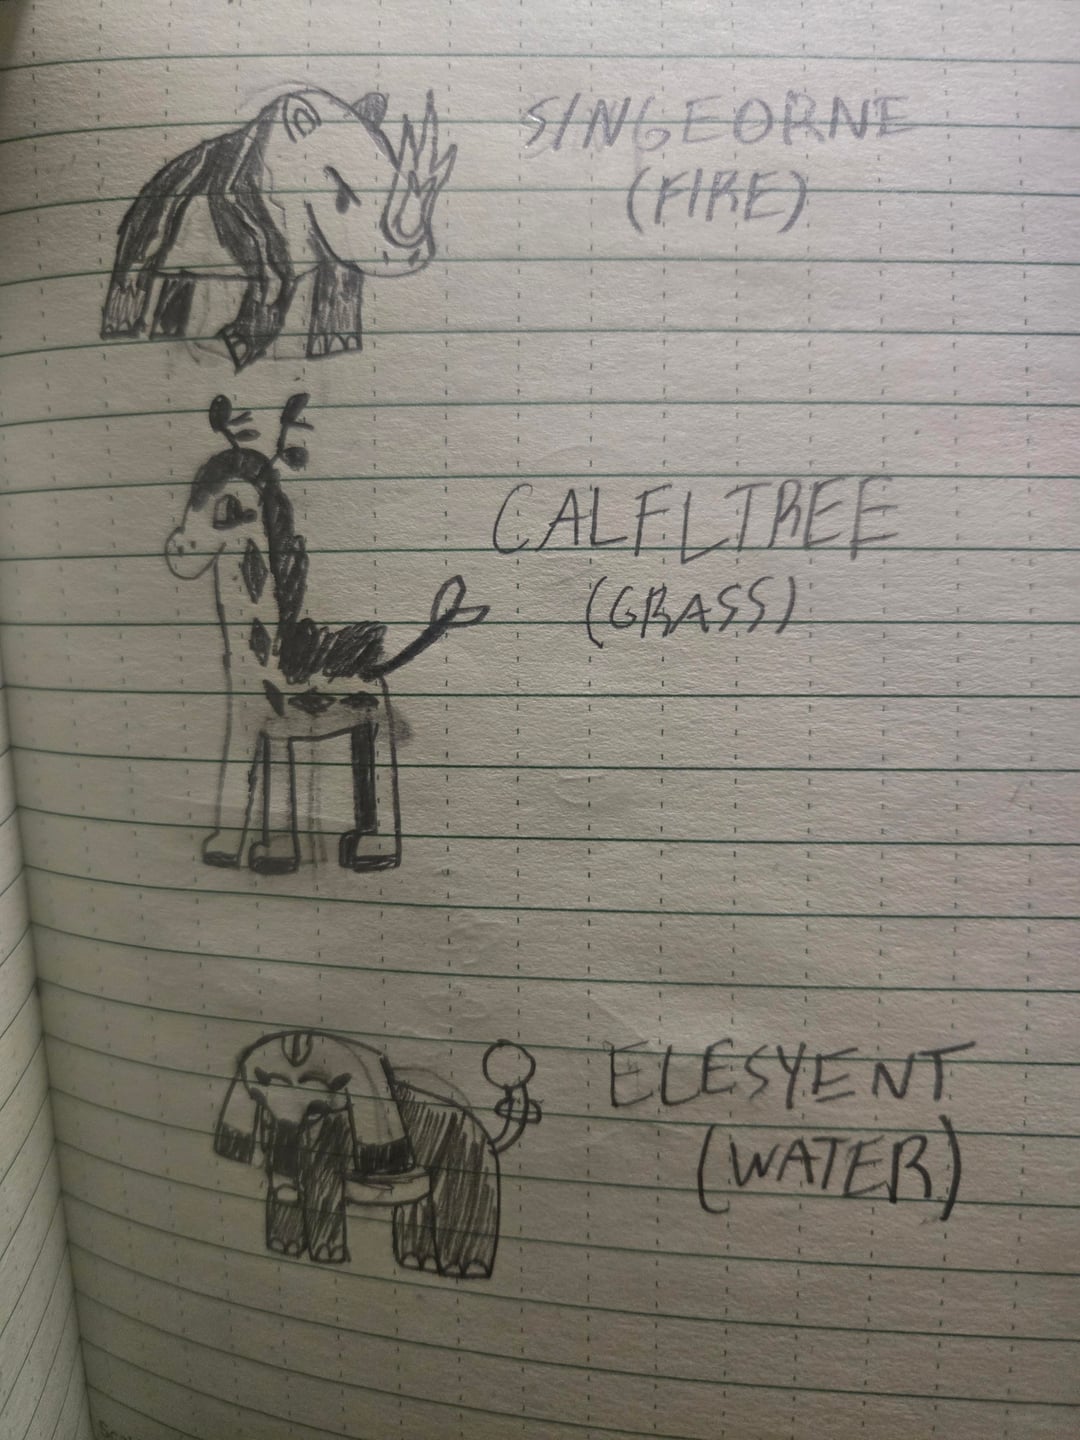 SINGEORNE
(FIRE)
CALFLTREE
(GRASS)
ELESYENT
(WATER)